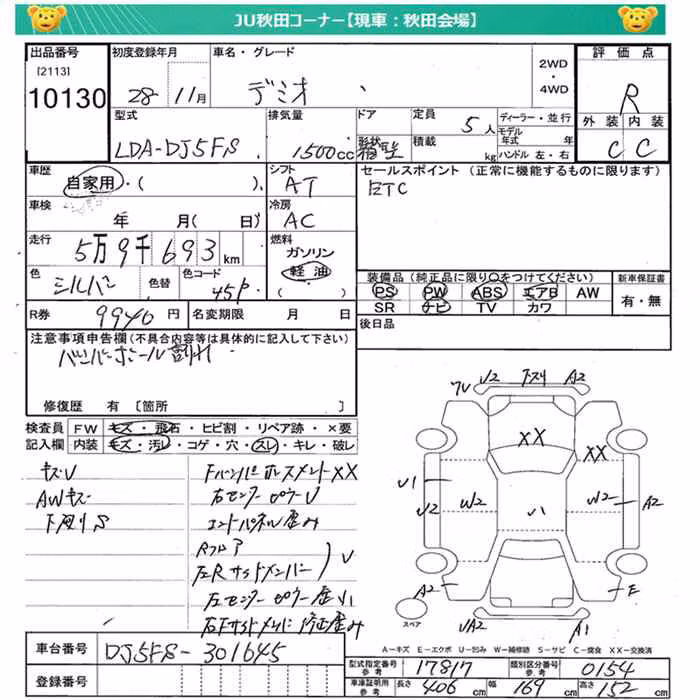 JU秋田コーナー【現車：秋田会場】
出品番号 初度登録年月 車名・グレード 2WD・4WD 評価点
[2113]
10130 28 11月 デミオ R
型式 排気量 ドア 定員 ディーラー・並行 外装 内装
LDA-DJ5FS 1500cc 形状 積載 kg 5人 モデル年式 年 ハンドル 左・右 C C
車歴 シフト セールスポイント (正常に機能するものに限ります)
自家用・( ) AT ETC
車検 冷房
年 月( 日) AC
走行 燃料
5万9千693km ガソリン
色 色替 色コード 軽油
シルバー 45P ( )
装備品 (純正品に限り〇をつけてください) 新車保証書
PS PW ABS エアB AW 有・無
SR ナビ TV カワ
R券 9940円 名変期限 月 日
後日品
注意事項申告欄(不具合内容等は具体的に記入して下さい)
バンパーホール割れ
修復歴 有 [箇所 ]
検査員 FW キズ・飛石・ヒビ割・リペア跡・×要
記入欄 内装 キズ・汚レ・コゲ・穴・スレ・キレ・破レ
キズU FバンパーホースメントXX
AWキズ 右センターピラーU
下廻りS エンドパネル歪み
Rフロア
左Rサイドメンバー U
左センターピラー歪小
右Fサイドメンバー修正歪み
WU U2 トスリ A2
XX XX
U1 U2 W2 U1 W2 A2
A2 E
スペア UA2 A1
A－キズ E－エクボ U－凹み W－補修跡 S－サビ C－腐食 XX－交換済
車台番号 DJ5FS-301645
登録番号
型式指定番号 参考 17817 類別区分番号 参考 0154
車庫証明用 参考 長さ 406cm 幅 169cm 高さ 152cm